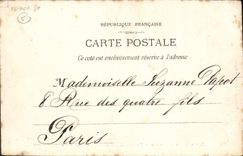 RÉPUBLIQUE FRANÇAISE
CARTE POSTALE
Ce côté est exclusivement réservé à l'adresse
Mademoiselle Suzanne
8 Rue des quatre fils
Paris